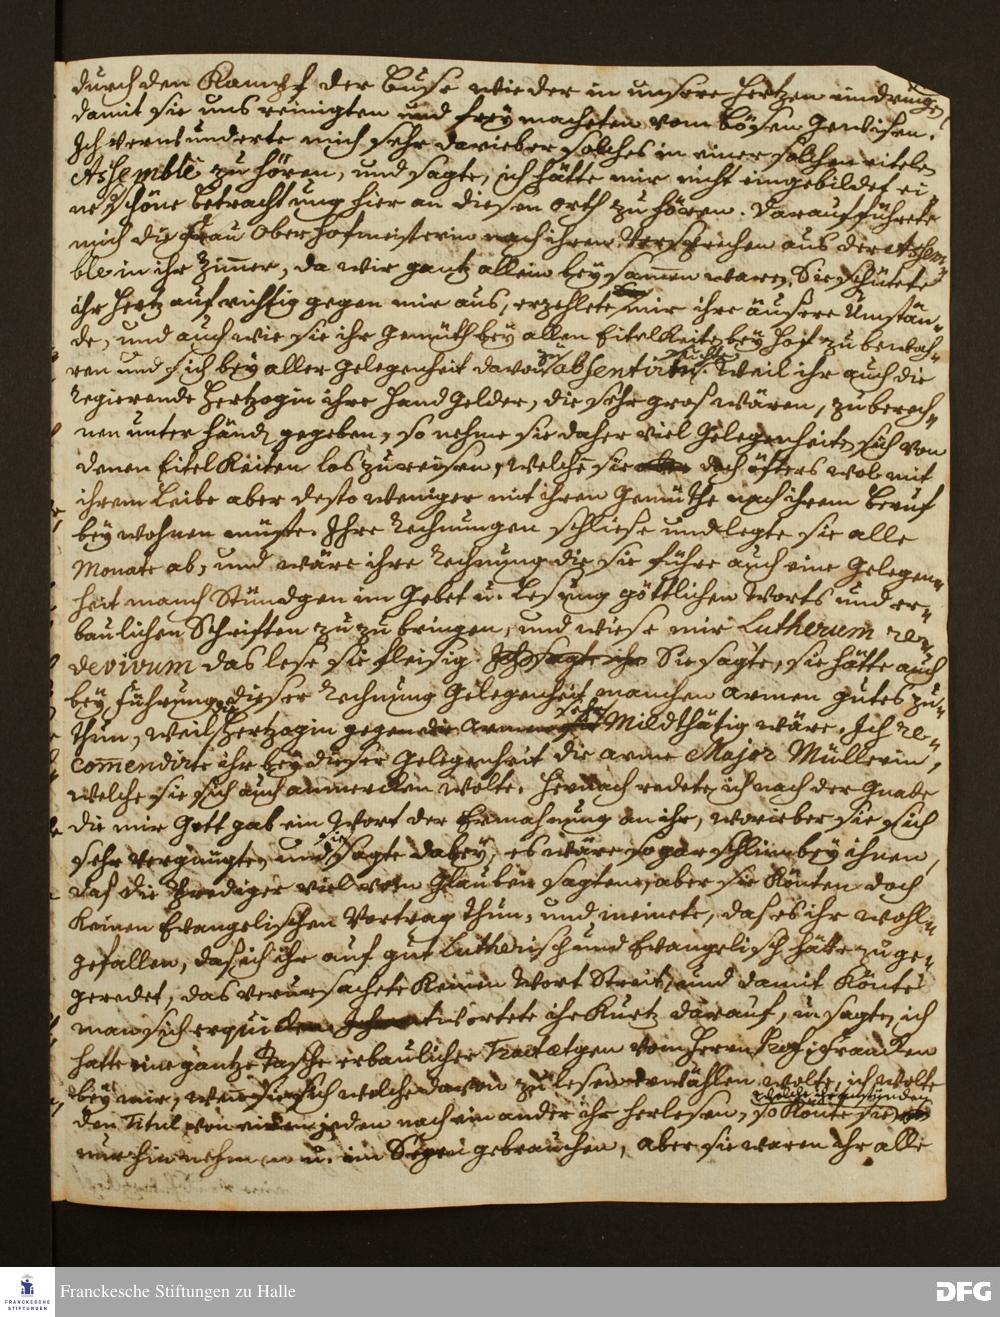 durch den Kampf der Buse wieder in unsere Hertzen eindringe
damit sie uns reinigten und frey macheten vom bösen Gewissen.
Ich verwunderte mich sehr darieber solches in einer solchen eitelen
Assemblé zu hören, und sagte, ich hätte mir nicht eingebildet ei
ne schöne betrachtung hier an diesen orth zu hören. Darauf führete
mich die Frau Oberhofmeisterin nach ihren Versprechen aus der Assem
ble in ihr Zimmer, da wir gantz allein beysammen waren, Sie schütete
ihr Hertz aufrichtig gegen mir aus, erzehlete mir ihre äusere Umstän„
de, und auch wie sie ihr Gemüth bey allen Eitelkeiten bey Hof zu bewah„
ren und sich bey aller Gelegenheit davon zu absentiren suchte. Weil ihr auch die
Regierende Hertzogin ihre Hand Gelder, die sehr gros wären, zu berech„
nen unter Händ gegeben, so nehme sie daher viel Gelegenheit sich von
denen Eitelkeiten los zu reisen, welche sie doch öfters wol mit
ihrem Leibe aber desto weniger mit ihren Gemüthe nach ihrem Beruf
bey wohnen müste. Ihre Rechnungen schliese und legte sie alle
Monate ab, und wäre ihre Rechnung die sie führe auch eine Gelegen„
heit manch Stündgen im Gebet u. Lesung göttlichen Worts und er„
baulichen Schriften zu zu bringen, und wiese mir Lutherum re„
devivum das lese sie fleisig. Sie sagte, sie hätte auch
bey führung dieser Rechnung Gelegenheit manchen armen gutes zu„
thun, weil Hertzogin gegen die Armen sehr Mildthätig wäre. Ich re„
com̄endirte ihr bey dieser Gelegenheit die arme Major Müllerin,
welche sie sich auch anmercken wolte. Hernach redete ich nach der Gnade
die mir Gott gab ein Wort der Ermahnung an ihr, worieber sie sich
sehr vergnügte, und sie sagte dabey, es wäre so gar schlim bey ihnen,
das die Prediger viel vom Glauben sagten, aber sie könten doch
keinen Evangelischen Vortrag thun, und meinete, das es ihr wohl„
gefallen, das ich ihr auf gut Lutherisch und Evangelisch hätte zuge„
geredet, das verursachete keinen Wort Streit, und damit könte
man sich erquicken. antwortete ihr kurtz darauf, u. sagte, ich
hatte eine gantze Tasche erbaulicher Tractätgen vom Herrn Prof. Francken
bey mir, wenn sie sich welche davon zu lesen erwählen wolte, ich wolte
den Titul von einem jeden nach ein ander ihr herlesen, welche ihr anstünden so könte sie
nur hin nehmen u. im Segen gebrauchen, aber sie waren ihr alle
Franckesche Stiftungen zu Halle
FRANCKESCHE
STIFTUNGEN
DFG